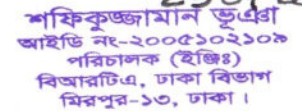 শফিকুজ্জামান ভূঞা
আইডি নং-২০০৫১০২১০৯
পরিচালক (ইঞ্জিঃ)
বিআরটিএ, ঢাকা বিভাগ
মিরপুর-১৩, ঢাকা।